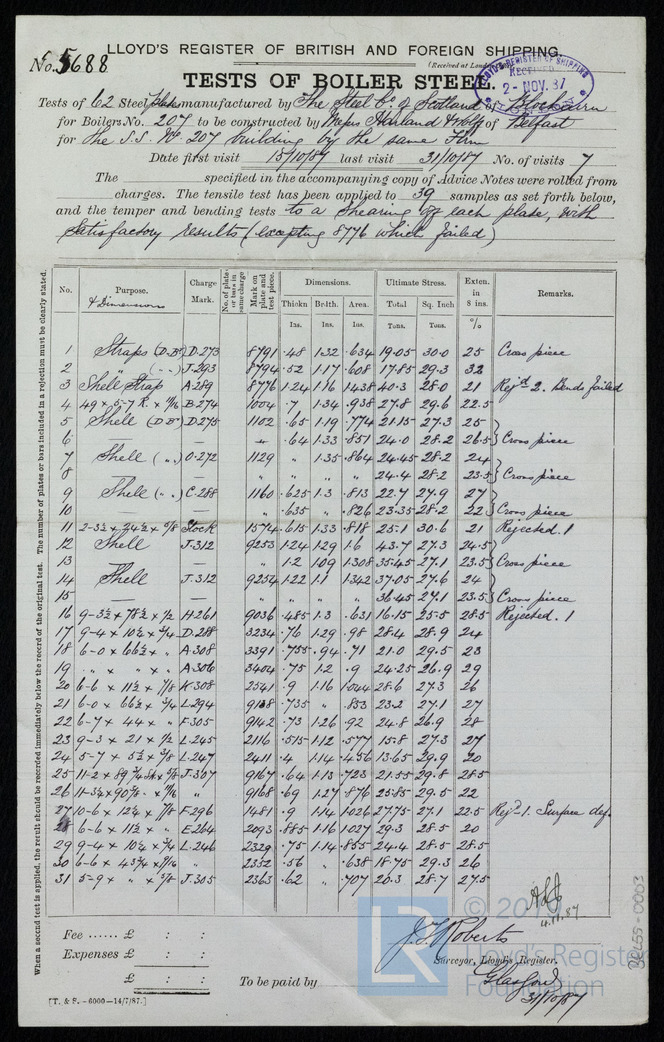 LLOYD'S REGISTER OF BRITISH AND FOREIGN SHIPPING.
No. 5688
(Received at London
LLOYD'S REGISTER OF SHIPPING
RECEIVED
2-NOV.87
TESTS OF BOILER STEEL.
Tests of 62 Steel Plates manufactured by The Steel Co. of Scotland of Blochairn
for Boilers No. 207 to be constructed by Messrs Harland & Wolff of Belfast
for the S.S. No 207 building by the same Firm
Date first visit 15/10/87 last visit 31/10/87 No. of visits 7
The specified in the accompanying copy of Advice Notes were rolled from
charges. The tensile test has been applied to 39 samples as set forth below,
and the temper and bending tests to a shearing off each plate, with
satisfactory results (excepting 8776 which failed)
When a second test is applied, the result should be recorded immediately below the record of the original test. The number of plates or bars included in a rejection must be clearly stated.
No. Purpose. & Dimensions Charge Mark. No. of plates or bars in same charge Mark on plate and test piece. Dimensions. Ultimate Stress. Exten. in 8 ins. Remarks.
Thickn Br'dth. Area. Total Sq. Inch
Ins. Ins. Ins. Tons. Tons. %
1 Straps (D.Bs) D.273 8791 .48 1.32 .634 19.05 30.0 25 Cross piece
2 " (" ") J.293 8794 .52 1.17 .608 17.85 29.3 32
3 Shell Strap A.289 8776 1.24 1.16 1.438 40.3 28.0 21 Rejd 2. Bends failed
4 49 x 5-7 R. x 11/16 B.274 1004 .7 1.34 .938 27.8 29.6 22.5
5 Shell (D.Bs) D.275 1102 .65 1.19 .774 21.15 27.3 25
6 — — " .64 1.33 .851 24.0 28.2 26.5 Cross piece
7 Shell (" ") O.272 1129 " 1.35 .864 24.45 28.2 24
8 — — " " " " 24.4 28.2 23.5 Cross piece
9 Shell (" ") C.288 1160 .625 1.3 .813 22.7 27.9 27
10 — — " .635 " .826 23.35 28.2 22 Cross piece
11 2-3½ x 24½ x 5/8 Stock 1574 .615 1.33 .818 25.1 30.6 21 Rejected. 1
12 Shell J.312 9253 1.24 1.29 1.6 43.7 27.3 24.5
13 — — " 1.2 1.09 1.308 35.45 27.1 23.5 Cross piece
14 Shell J.312 9254 1.22 1.1 1.342 37.05 27.6 24
15 — — " " " " 36.45 27.1 23.5 Cross piece
16 9-3½ x 78½ x ½ H.261 9036 .485 1.3 .631 16.15 25.5 28.5 Rejected. 1
17 9-4 x 10½ x ¾ D.288 3234 .76 1.29 .98 28.4 28.9 24
18 6-0 x 66½ x " A.308 3391 .755 .94 .71 21.0 29.5 23
19 " x " x " A.306 3404 .75 1.2 .9 24.25 26.9 29
20 6-6 x 11½ x 7/8 K.308 2541 .9 1.16 1.044 28.6 27.3 26
21 6-0 x 66½ x ¾ L.294 9138 .735 " .853 23.2 27.1 27
22 6-7 x 44 x " F.305 9142 .73 1.26 .92 24.8 26.9 28
23 9-3 x 21 x ½ L.245 2116 .515 1.12 .577 15.8 27.3 27
24 5-7 x 5½ x 3/8 L.247 2411 .4 1.14 .456 13.65 29.9 20
25 11-2 x 89 ¾ x 5/8 J.307 9167 .64 1.13 .723 21.55 29.8 28.5
26 11-3¼ x 90⅞ x 11/16 " 9168 .69 1.27 .876 25.85 29.5 22
27 10-6 x 12¼ x 7/8 F.296 1481 .9 1.14 1.026 27.75 27.1 22.5 Rejd 1. Surface def.
28 6-6 x 11½ x " E.264 2093 .885 1.16 1.027 29.3 28.5 20
29 9-4 x 10½ x ¾ L.246 2329 .75 1.14 .855 24.4 28.5 28.5
30 6-6 x 43¾ x 9/16 " 2352 .56 " .638 18.75 29.3 26
31 5-9 x " x 5/8 J.305 2363 .62 " .707 20.3 28.7 27.5
4.11.87
Fee ...... £ : :
J. T. Roberts
Expenses £ : :
Surveyor, Lloyd's Register.
£ : : To be paid by
Glasgow
31/10/87
[T. & S. - 6000—14/7/87.]
BEL55-0003
LR
© 2019
Lloyd's Register
Foundation